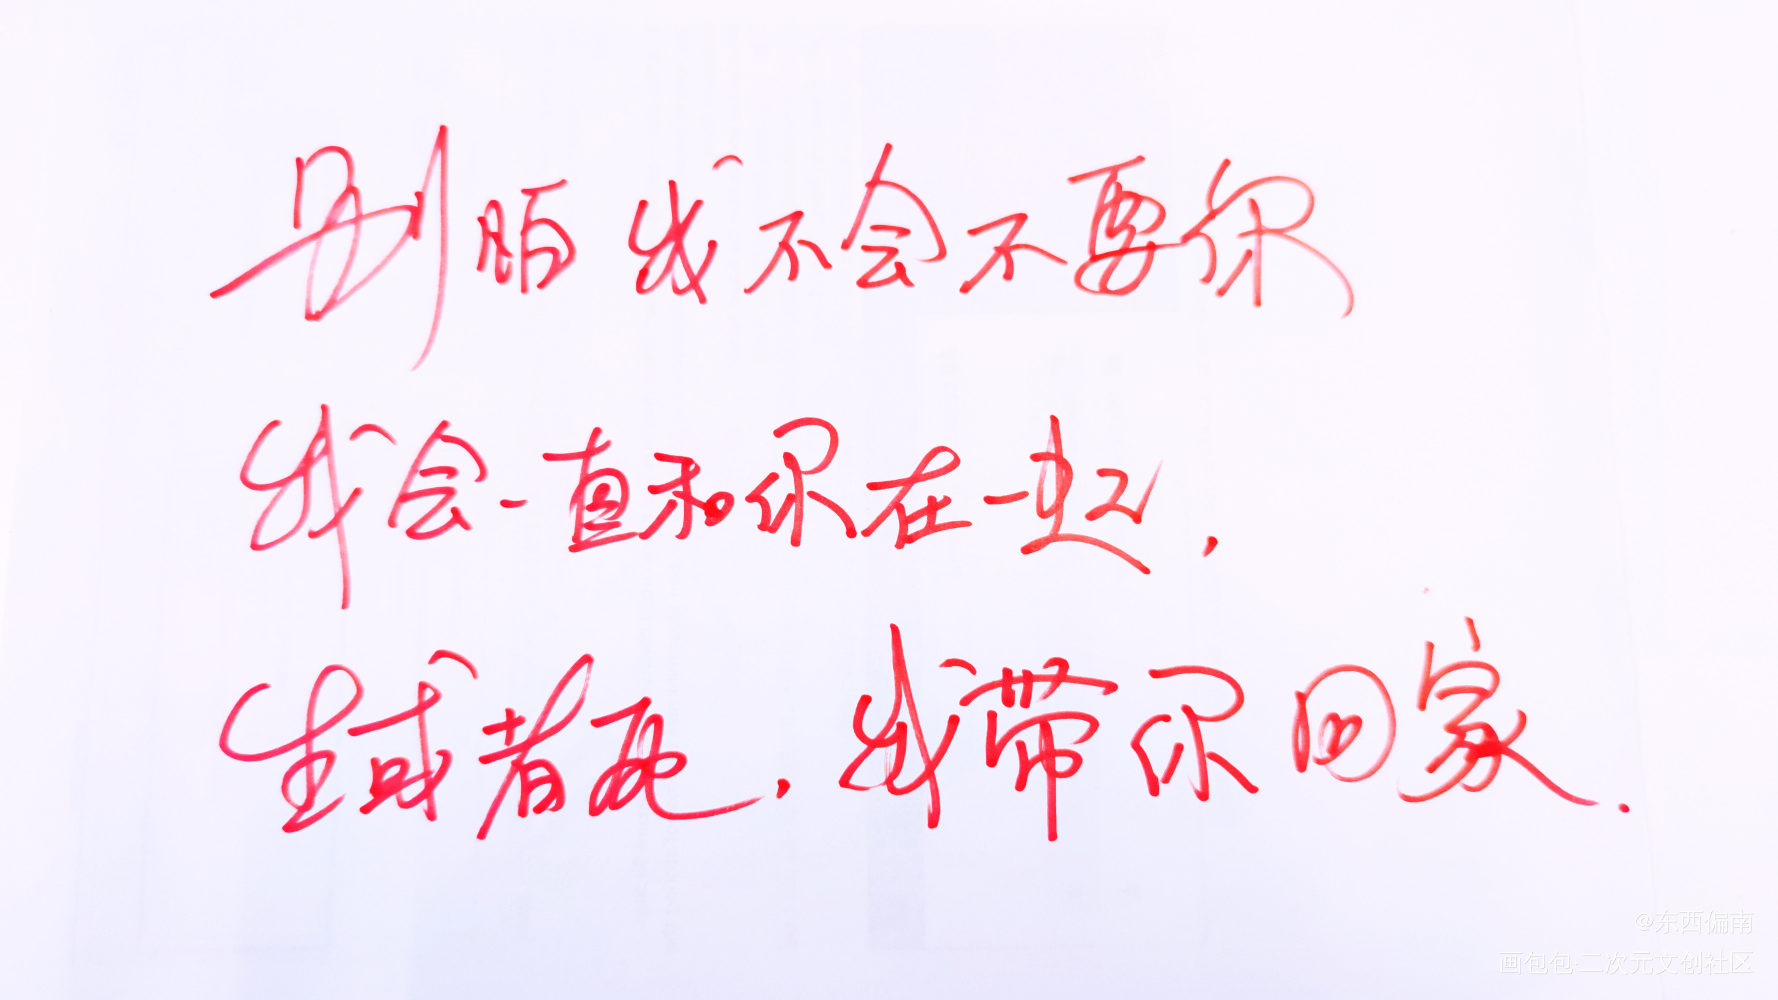 别怕 我不会不要你
我会一直和你在一起，
生或者死，我带你回家.
@东西偏南
画包包·二次元文创社区